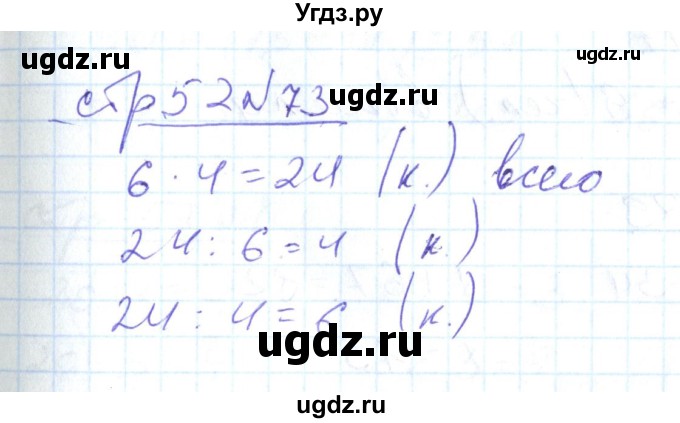 Угдз.ру
ugdz.ru
ugdz.ru
стр 52 № 73
ugdz.ru
6 · 4 = 24 (к.) всего
24 : 6 = 4 (к.)
24 : 4 = 6 (к.)
ugdz.ru
ugdz.ru
ugdz.ru